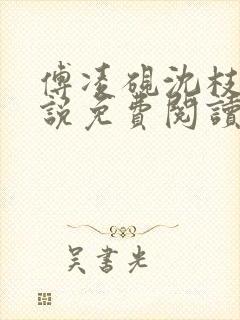 傅凌硯沈枝
說免費閱讀
吴書光